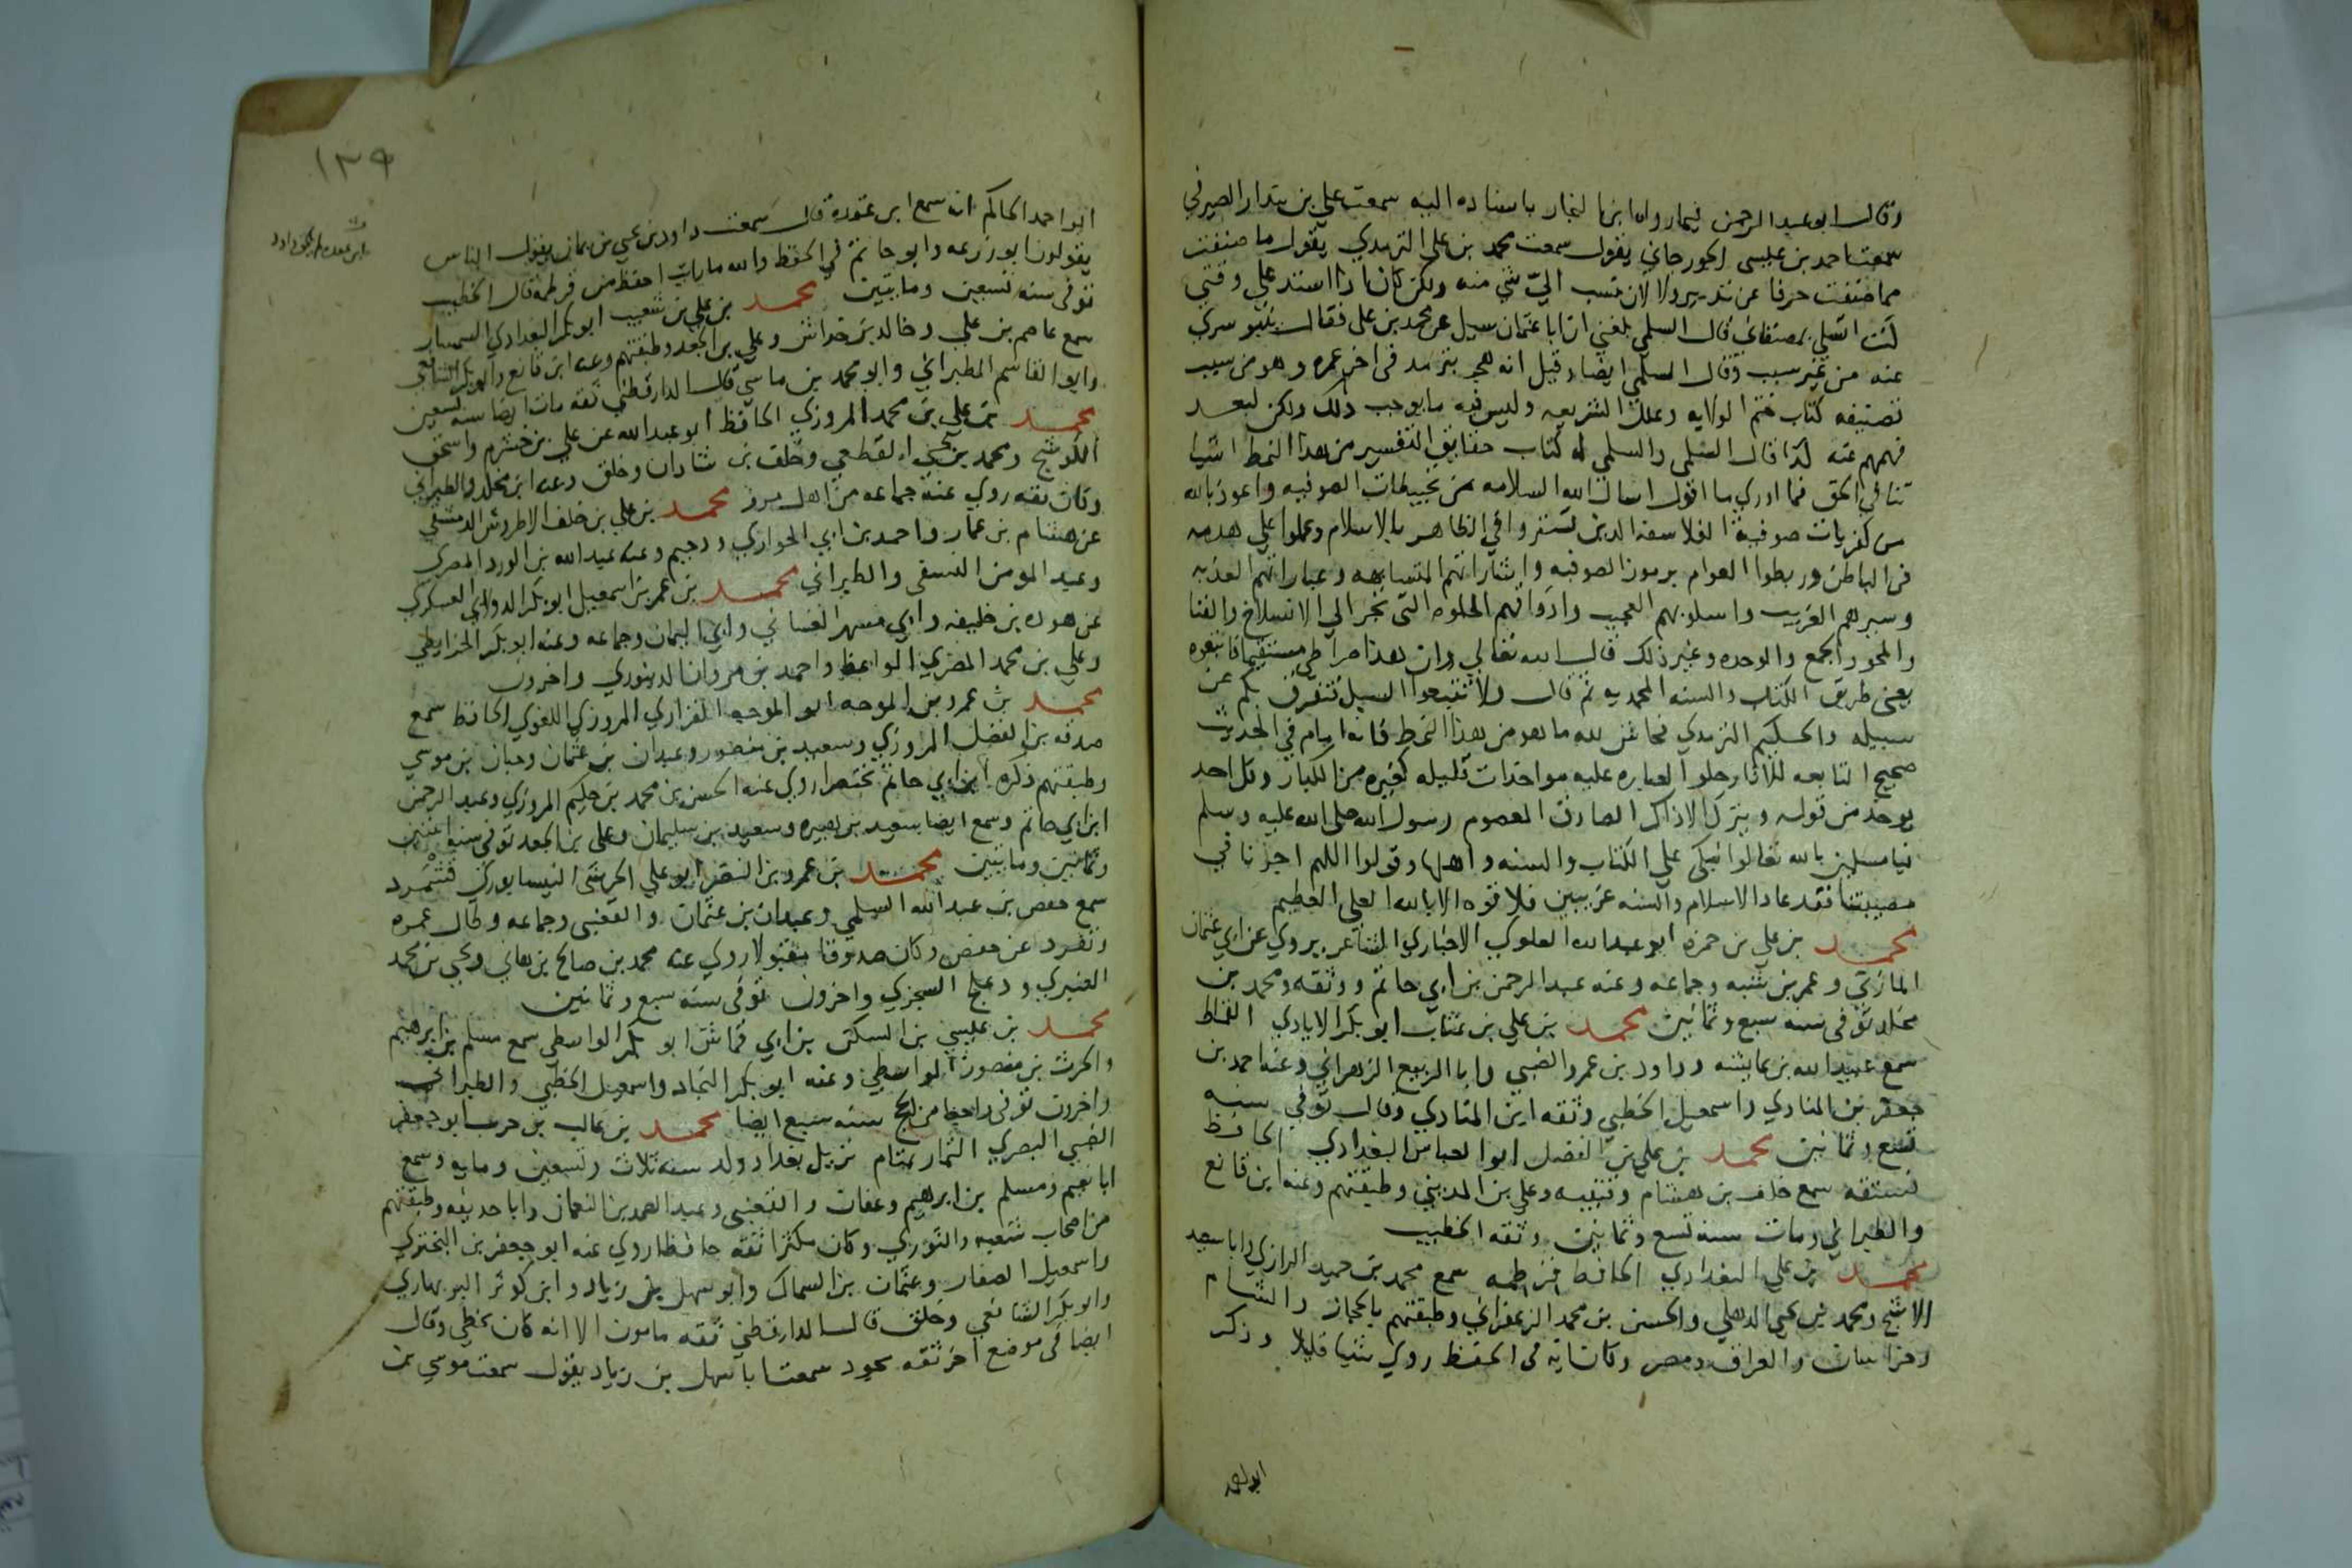 وقال ابو عبد الرحمن فيما رواه ابن النجار باسناده اليه سمعت علي بن بندار الصيرفي
سمعت احمد بن عيسى الجورجاني يقول سمعت محمد بن علي الترمذي يقول ما صنفت
مما صنفت حرفا عن تدبير ولا لان ينسب اليّ شي منه ولكن كان اذا اشتد علي وقتي
اتسلى بمصنفاتي قال السلمي بلغني ان ابا عثمان سيل عن محمد بن علي فقال
عنه من غير سبب وقال السلمي ايضا وقيل انه هجر بترمذ في اخر عمره وهو من سبب
تصنيفه كتاب ختم الولايه وعلل الشريعه وليس فيه ما يوجب ذلك ولكن لبعد
فهمهم عنه كذا قال السلمي والسلمي له كتاب حقايق التفسير من هذا النمط اشيا
تنافي الحق فما ادري ما اقول اسال الله السلامه من تخبيطات الصوفيه واعوذ بالله
من كفريات صوفية الفلاسفه الذين تستروا في الظاهر بالاسلام وعملوا علي هدمه
في الباطن وربطوا العوام برموز الصوفيه واشاراتهم المتشابهه وعباراتهم العذبه
وسيرهم الغريب واسلوبهم العجيب واذواقهم الحلوه التي تجر الي الانسلاخ والفنا
والمحو والجمع والوحده وغير ذلك قال الله تعالي وان هذا صراطي مستقيما فاتبعوه
يعني طريق الكتاب والسنه المحمديه ثم قال ولا تتبعوا السبل فتفرق بكم عن
سبيله والحكيم الترمذي فحاش لله ما هو من هذا النمط فانه امام في الحديث
صحيح المتابعه للاثار حلو العباره عليه مواخذات قليله كغيره من الكبار وكل احد
يوخذ من قوله ويترك الا ذاك الصادق المعصوم رسول الله صلى الله عليه وسلم
فيا مسلمين بالله تعالوا نبكي علي الكتاب والسنه واهلها وقولوا اللهم اجرنا في
مصيبتنا فقد عاد الاسلام والسنه غريبين فلا قوه الا بالله العلي العظيم
محمد بن علي بن حمزه ابو عبد الله العلوي الاخباري الشاعر يروي عن ابي عثمان
المازني وعمر بن شبه وجماعه وعنه عبد الرحمن بن ابي حاتم ووثقه ومحمد بن
مخلد توفى سنه سبع وثمانين محمد بن علي بن عتاب ابو بكر الايادي القماط
سمع عبيد الله بن عايشه وداود بن عمرو الضبي وابا الربيع الزهراني وعنه احمد بن
جعفر بن المنادي واسمعيل الخطبي وثقه ابن المنادي وقال توفي سنه
تسع وثمانين محمد بن علي بن الفضل ابو العباس البغدادي الحافظ
فستقه سمع خلف بن هشام وقتيبه وعلي بن المديني وطبقتهم وعنه ابن قانع
والطبراني ومات سنه تسع وثمانين وثقه الخطيب
محمد بن علي البغدادي الحافظ قرطمه سمع محمد بن حميد الرازي وابا سعيد
الاشج ومحمد بن يحيى الذهلي والحسن بن محمد الزعفراني وطبقتهم بالحجاز والشام
وخراسان والعراق ومصر وكان ايه في الحفظ روي شيا قليلا وذكر
ابو احمد
١٣٩
ابو احمد الحاكم انه سمع ابن عقده قال سمعت داود بن يحيى بن يمان يقول الناس
يقولون ابو زرعه وابو حاتم في الحفظ والله ما رايت احفظ من قرطمه قال الخطيب
توفى سنه تسعين ومايتين محمد بن علي بن شعيب ابو بكر البغدادي السمسار
سمع عاصم بن علي وخالد بن خداش وعلي بن الجعد وطبقتهم وعنه ابن قانع وابو بكر الشافعي
وابو القاسم الطبراني وابو محمد بن ماسي قال الدارقطني ثقه مات ايضا سنه تسعين
محمد بن علي بن محمد المروزي الحافظ ابو عبد الله عن علي بن خشرم واسحق
الكوسج ومحمد بن يحيى القطعي وخلق بن شاذان وخلق وعنه ابن مخلد والطبراني
وكان ثقه روي عنه جماعه من اهل مرو محمد بن علي بن خلف الاطروش الدمشقي
عن هشام بن عمار واحمد بن ابي الحواري ودحيم وعنه عبد الله بن الورد المصري
وعبد المومن النسفي والطبراني محمد بن عمر بن اسمعيل ابو بكر الدولابي العسكري
عن هوذه بن خليفه وابي مسهر الغساني وابي اليمان وجماعه وعنه ابو بكر الخرايطي
وعلي بن محمد المصري الواعظ واحمد بن مروان الدينوري واخرون
محمد بن عمرو بن الموجه ابو الموجه الفزاري المروزي اللغوي الحافظ سمع
صدقه بن الفضل المروزي وسعيد بن منصور وعبدان بن عثمان وحبان بن موسي
وطبقتهم ذكره ابن ابي حاتم مختصرا روي عنه الحسن بن محمد بن حليم المروزي وعبد الرحمن
ابن ابي حاتم وسمع ايضا سعيد بن هبيره وسعيد بن سليمان وعلي بن الجعد توفى سنه اثنين
وثمانين ومايتين محمد بن عمرو بن النضر ابو علي الحرشي النيسابوري قشمرد
سمع حفص بن عبد الله السلمي وعبدان بن عثمان والقعنبي وجماعه وطال عمره
وتفرد عن حفص وكان صدوقا مقبولا روي عنه محمد بن صالح بن هاني ويحيى بن محمد
العنبري ودعلج السجزي واخرون توفى سنه سبع وثمانين
محمد بن عيسي بن السكن بن ابي قماش ابو بكر الواسطي سمع مسلم بن ابرهيم
والحرث بن منصور الواسطي وعنه ابو بكر النجاد واسمعيل الخطبي والطبراني
واخرون توفى راجعا من الحج سنه سبع ايضا محمد بن غالب بن حرب ابو جعفر
الضبي البصري التمار تمتام نزيل بغداد ولد سنه ثلاث وتسعين ومايه وسمع
ابا نعيم ومسلم بن ابرهيم وعفان والقعنبي وعبد الصمد بن النعمان وابا حذيفه وطبقتهم
من اصحاب شعبه والثوري وكان مكثرا ثقه حافظا روي عنه ابو جعفر بن البختري
واسمعيل الصفار وعثمان بن السماك وابو سهل بن زياد وابن كوثر البربهاري
وابو بكر الشافعي وخلق قال الدارقطني ثقه مامون الا انه كان يخطي وقال
ايضا في موضع اخر ثقه مجود سمعت ابا سهل بن زياد يقول سمعت موسي بن